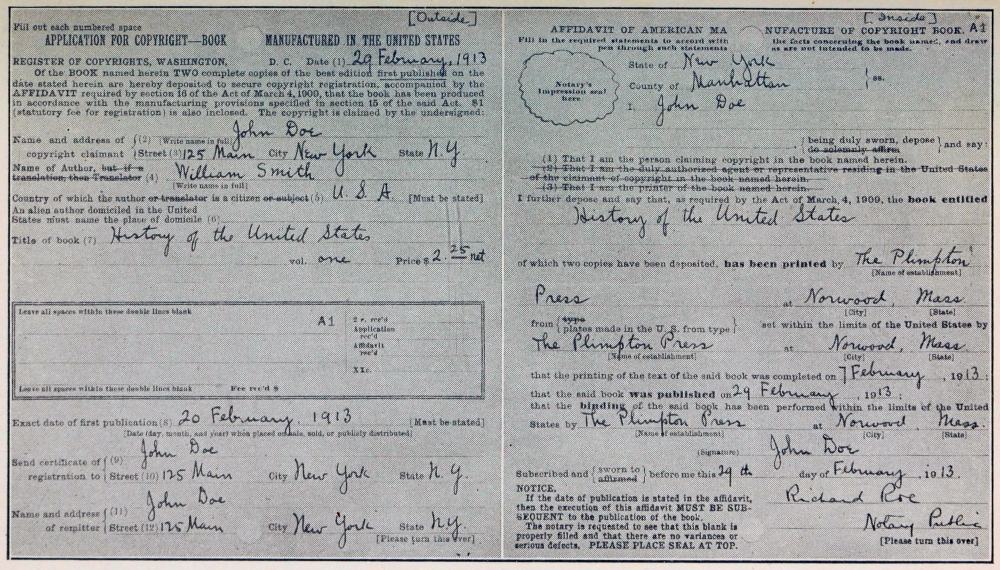 [Outside]
Fill out each numbered space
APPLICATION FOR COPYRIGHT—BOOK MANUFACTURED IN THE UNITED STATES
REGISTER OF COPYRIGHTS, WASHINGTON, D. C. Date (1) 29 February, 1913
Of the BOOK named herein TWO complete copies of the best edition first published on the
date stated herein are hereby deposited to secure copyright registration, accompanied by the
AFFIDAVIT required by section 16 of the Act of March 4, 1909, that the book has been produced
in accordance with the manufacturing provisions specified in section 15 of the said Act. $1
(statutory fee for registration) is also inclosed. The copyright is claimed by the undersigned:
John Doe
Name and address of (2) [Write name in full]
copyright claimant Street (3) 125 Main City New York State N.Y.
Name of Author, but if a
translation, then Translator (4) William Smith
[Write name in full]
Country of which the author or translator is a citizen or subject (5) U. S. A. [Must be stated]
An alien author domiciled in the United
States must name the place of domicile (6)
Title of book (7) History of the United States
vol. one Price $ 2.25 net
Leave all spaces within these double lines blank
A1
2 c. rec'd
Application
rec'd
Affidavit
rec'd
XXc.
Leave all spaces within these double lines blank Fee rec'd $
Exact date of first publication (8) 20 February, 1913 [Must be stated]
[Date (day, month, and year) when placed on sale, sold, or publicly distributed]
John Doe
Send certificate of (9)
registration to Street (10) 125 Main City New York State N.Y.
John Doe
Name and address (11)
of remitter Street (12) 125 Main City New York State N.Y.
[Please turn this over]
[Inside]
AFFIDAVIT OF AMERICAN MANUFACTURE OF COPYRIGHT BOOK. A1
Fill in the required statements to accord with the facts concerning the book named, and draw
pen through such statements as are not intended to be made.
Notary's
Impression seal
here
State of New York
County of Manhattan ss.
I, John Doe
being duly sworn, depose
do solemnly affirm and say:
(1) That I am the person claiming copyright in the book named herein.
(2) That I am the duly authorized agent or representative residing in the United States
of the claimant of copyright in the book named herein.
(3) That I am the printer of the book named herein.
I further depose and say that, as required by the Act of March 4, 1909, the book entitled
History of the United States
of which two copies have been deposited, has been printed by The Plimpton
[Name of establishment]
Press at Norwood, Mass.
[City] [State]
from type
plates made in the U. S. from type set within the limits of the United States by
The Plimpton Press at Norwood, Mass.
[Name of establishment] [City] [State]
that the printing of the text of the said book was completed on 7 February, 1913;
that the said book was published on 29 February, 1913;
that the binding of the said book has been performed within the limits of the United
States by The Plimpton Press at Norwood, Mass.
[Name of establishment] [City] [State]
(Signature) John Doe
Subscribed and sworn to
affirmed before me this 29th day of February, 1913.
NOTICE.
If the date of publication is stated in the affidavit,
then the execution of this affidavit MUST BE SUB-
SEQUENT to the publication of the book.
The notary is requested to see that this blank is
properly filled and that there are no variances or
serious defects. PLEASE PLACE SEAL AT TOP.
Richard Roe
Notary Public
[Please turn this over]